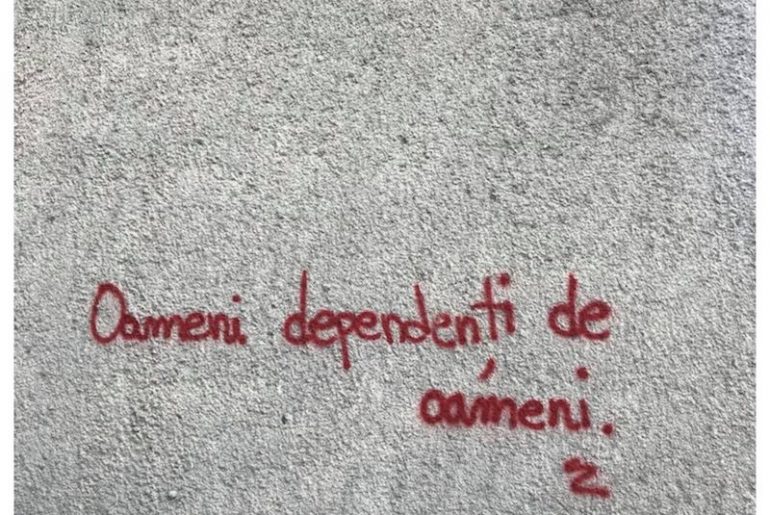 Oameni dependenți de
oameni.
2